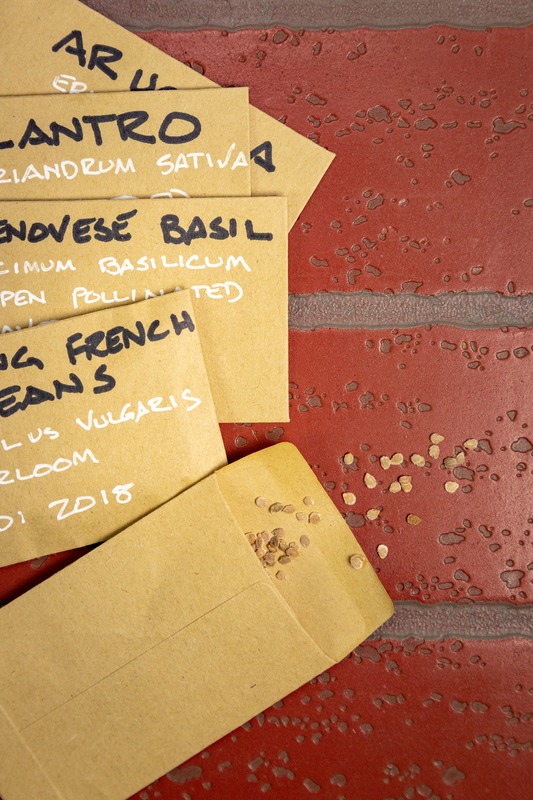 AR
LANTRO
RIANDRUM SATIVA
ENOVESE BASIL
CIMUM BASILICUM
PEN POLLINATED
NG FRENCH
EANS
LUS VULGARIS
RLOOM
2018